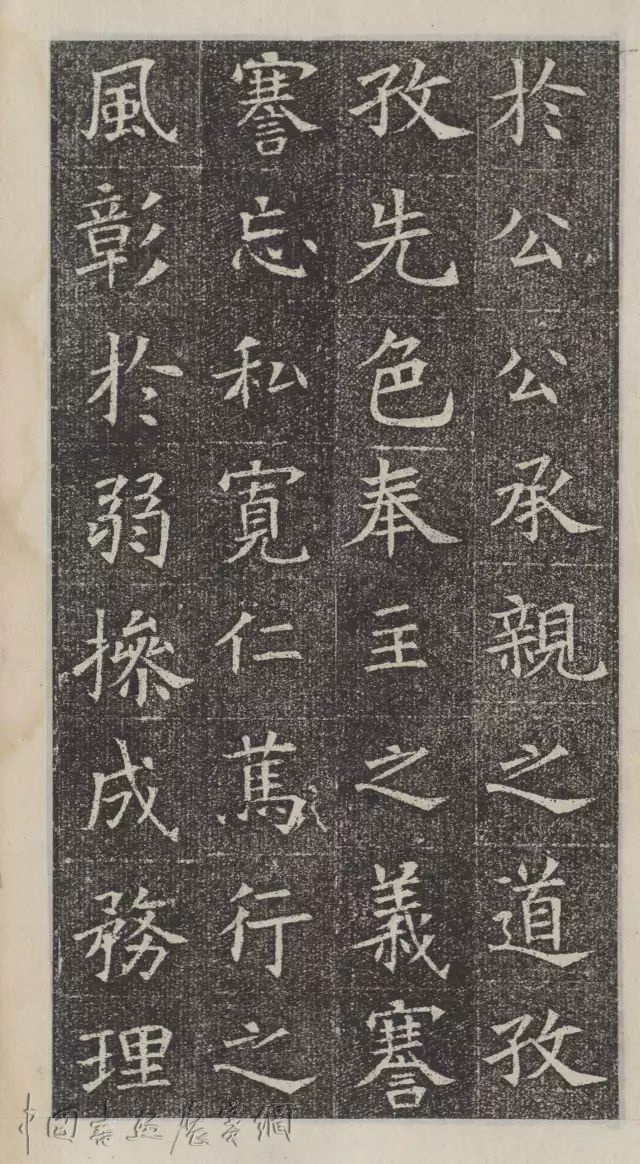 於公公承親之道孜
孜先色奉主之義謇
謇忘私寛仁篤行之
風彰於弱操成務理
中国書法展賽網